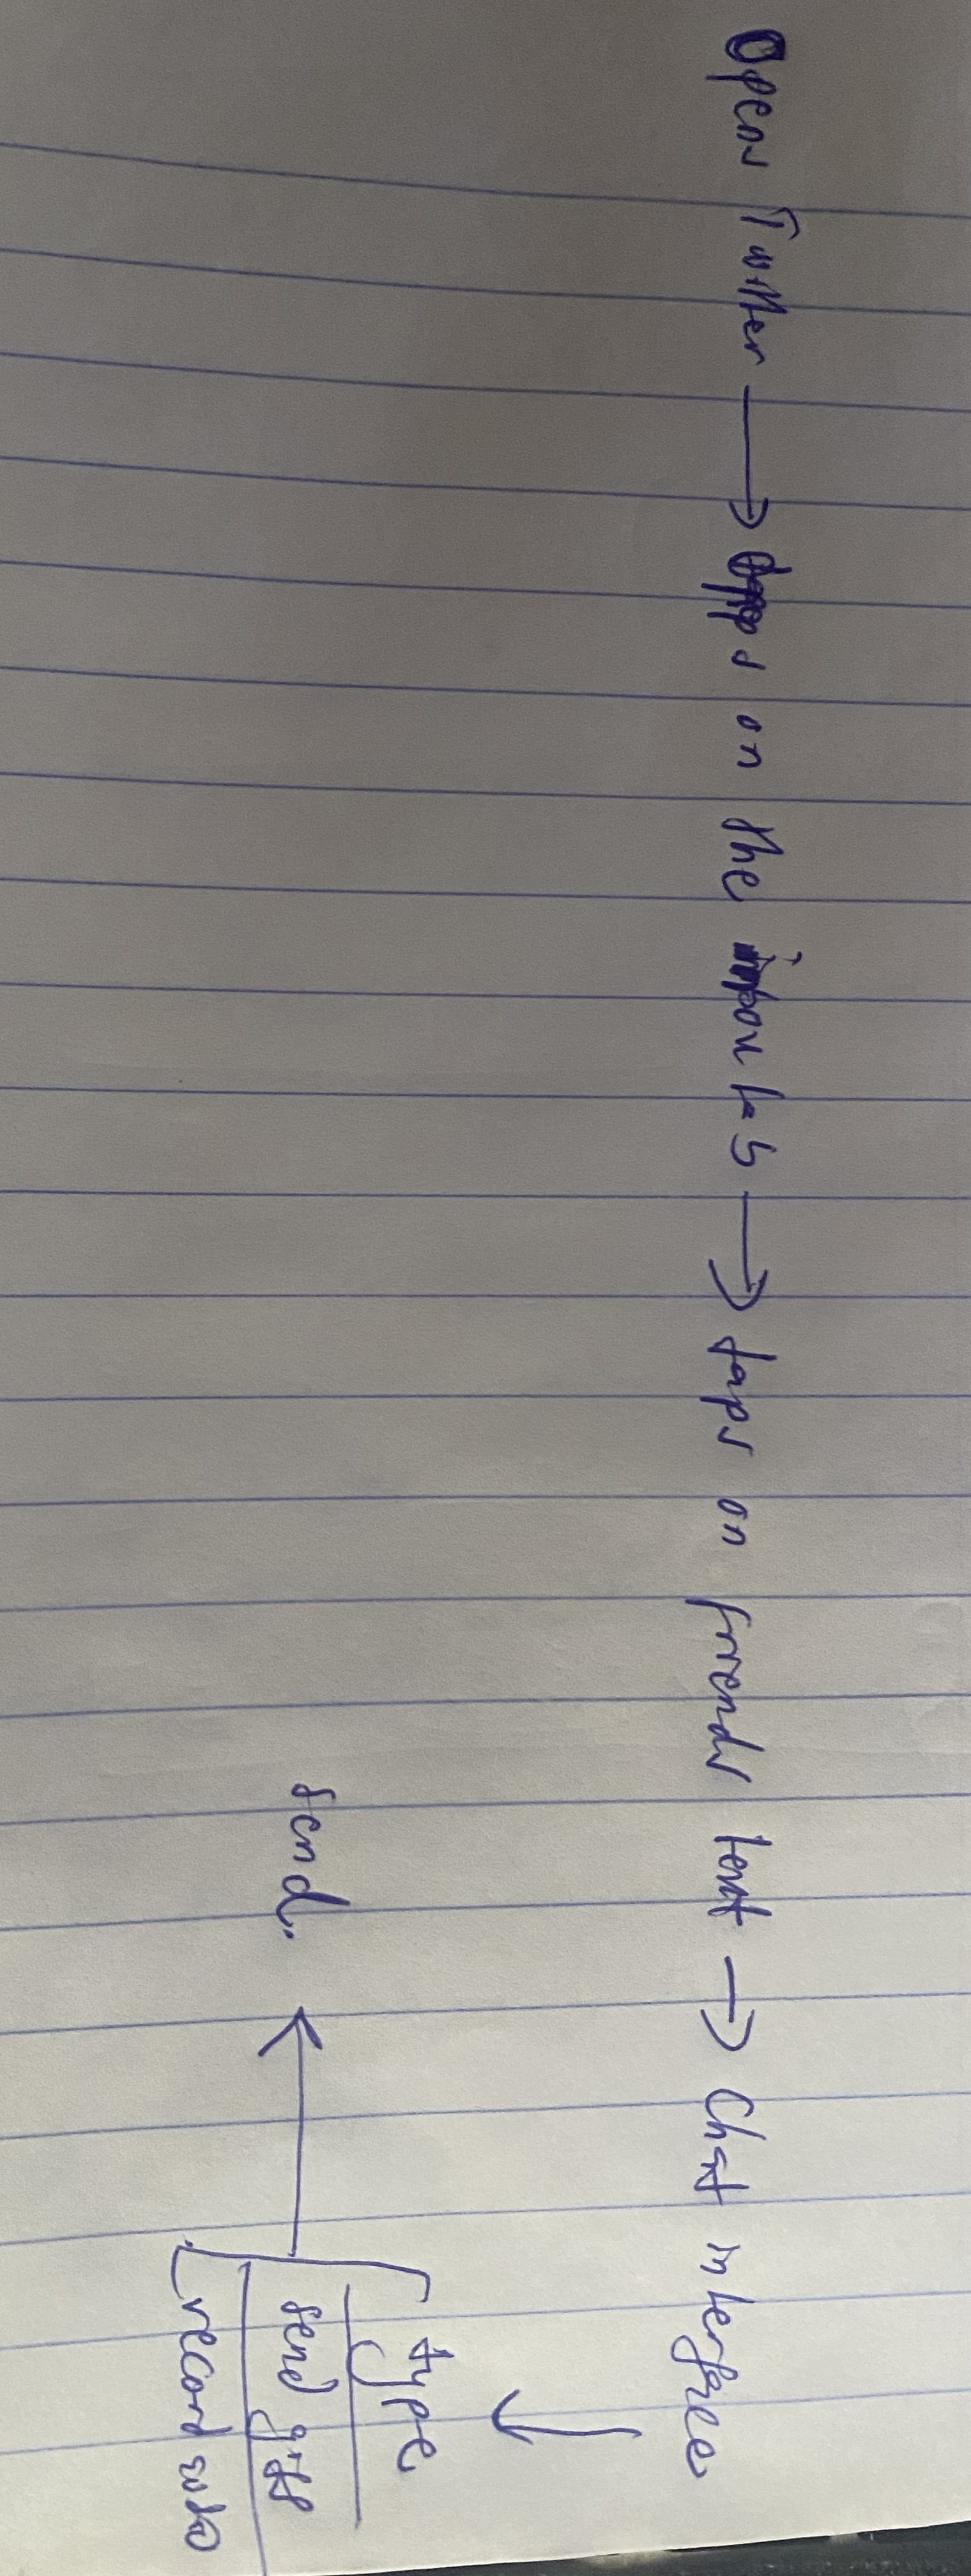 Opens Twitter → taps on the inbox tab → taps on friends text → Chat interface
↓
type
send gifs
record
← send.